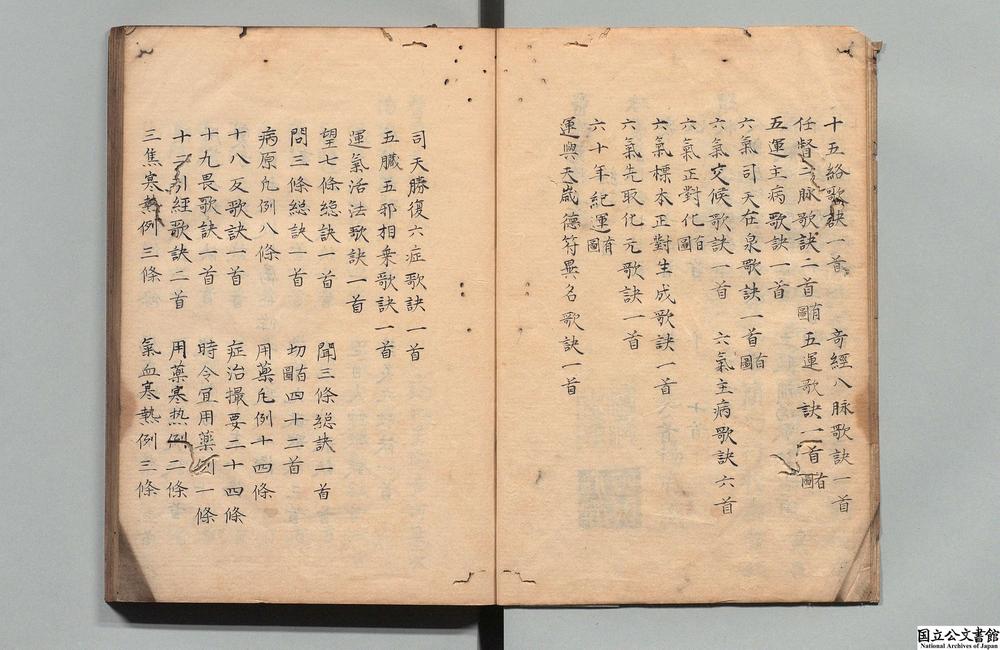 十五絡歌訣一首　奇經八脉歌訣一首
任督二脉歌訣二首有圖　五運歌訣一首有圖
五運主病歌訣一首
六氣司天在泉歌訣一首有圖
六氣交候歌訣一首　六氣主病歌訣六首
六氣正對化有圖
六氣標本正對生成歌訣一首
六氣先取化元歌訣一首
六十年紀運有圖
運與天歲德符異名歌訣一首
司天勝復六症歌訣一首
五臟五邪相乗歌訣一首
運氣活法歌訣一首
望七條總訣一首　聞三條總訣一首
問三條総訣一首　切有圖四十二首
病原凡例八條　用藥凡例十四條
十八反歌訣一首　症治撮要二十四條
十九畏歌訣一首　時令宜用藥例一條
十二引經歌訣二首　用藥寒热例二條
三焦寒熱例三條　氣血寒熱例三條
国立公文書館
National Archives of Japan